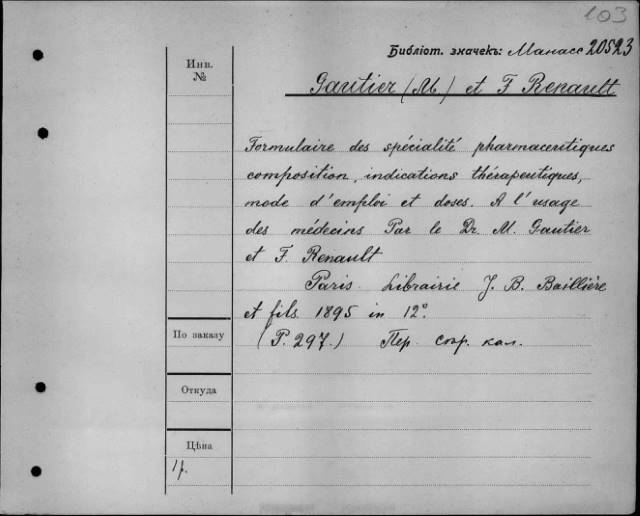 103
Библіот. значекъ: Манасс 20523
Инв.
№
Gautier (M) et F Renault
Formulaire des spécialité pharmaceutiques
composition, indications thérapeutiques,
mode d'emploi et doses. A l'usage
des médecins Par le Dr. M. Gautier
et F. Renault
Paris Librairie J. B. Baillière
et fils 1895 in 12°.
По заказу
(P. 297.) Пер. сохр. кал.
Откуда
Цѣна
1 р.